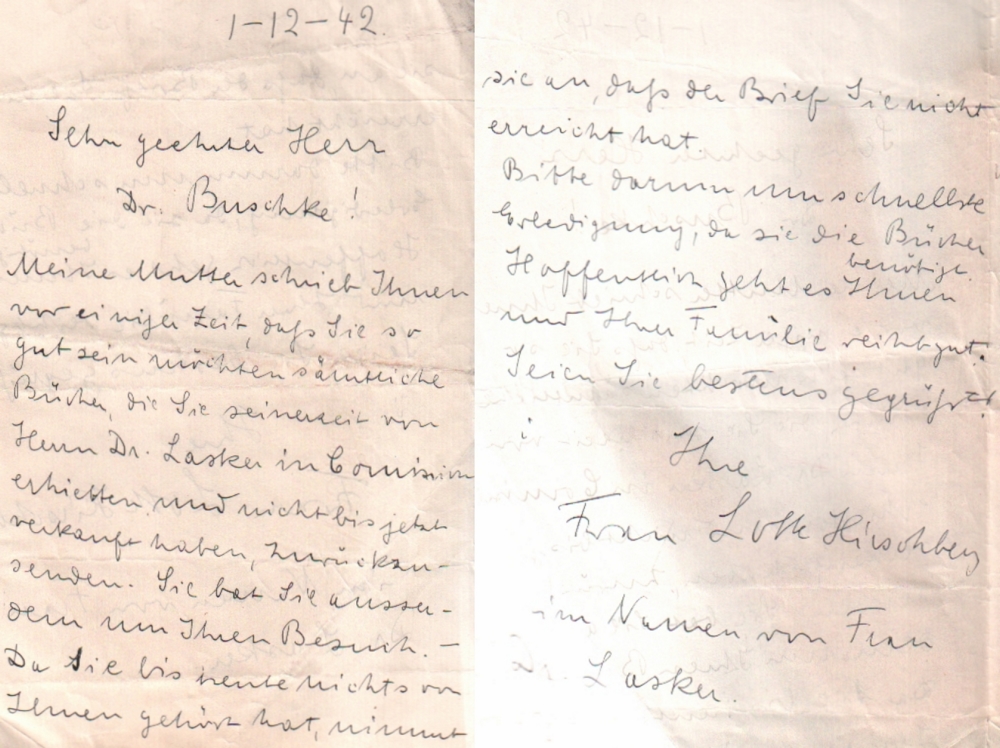 1-12-42.
Sehr geehrter Herr
Dr. Buschke!
Meine Mutter schrieb Ihnen
vor einiger Zeit, daß Sie so
gut sein möchten sämtliche
Bücher, die Sie seinerzeit von
Herrn Dr. Lasker in Comission
erhielten und nicht bis jetzt
verkauft haben, zurückzu-
senden. Sie bat Sie ausser-
dem um Ihren Besuch. –
Da Sie bis heute nichts von
Ihnen gehört hat, nimmt
sie an, daß der Brief Sie nicht
erreicht hat.
Bitte darum um schnellste
Erledigung, da sie die Bücher
benötigt.
Hoffentlich geht es Ihnen
und Ihrer Familie recht gut.
Seien Sie bestens gegrüßt!
Ihre
Frau Lotte Hirschberg
im Namen von Frau
Dr. Lasker.